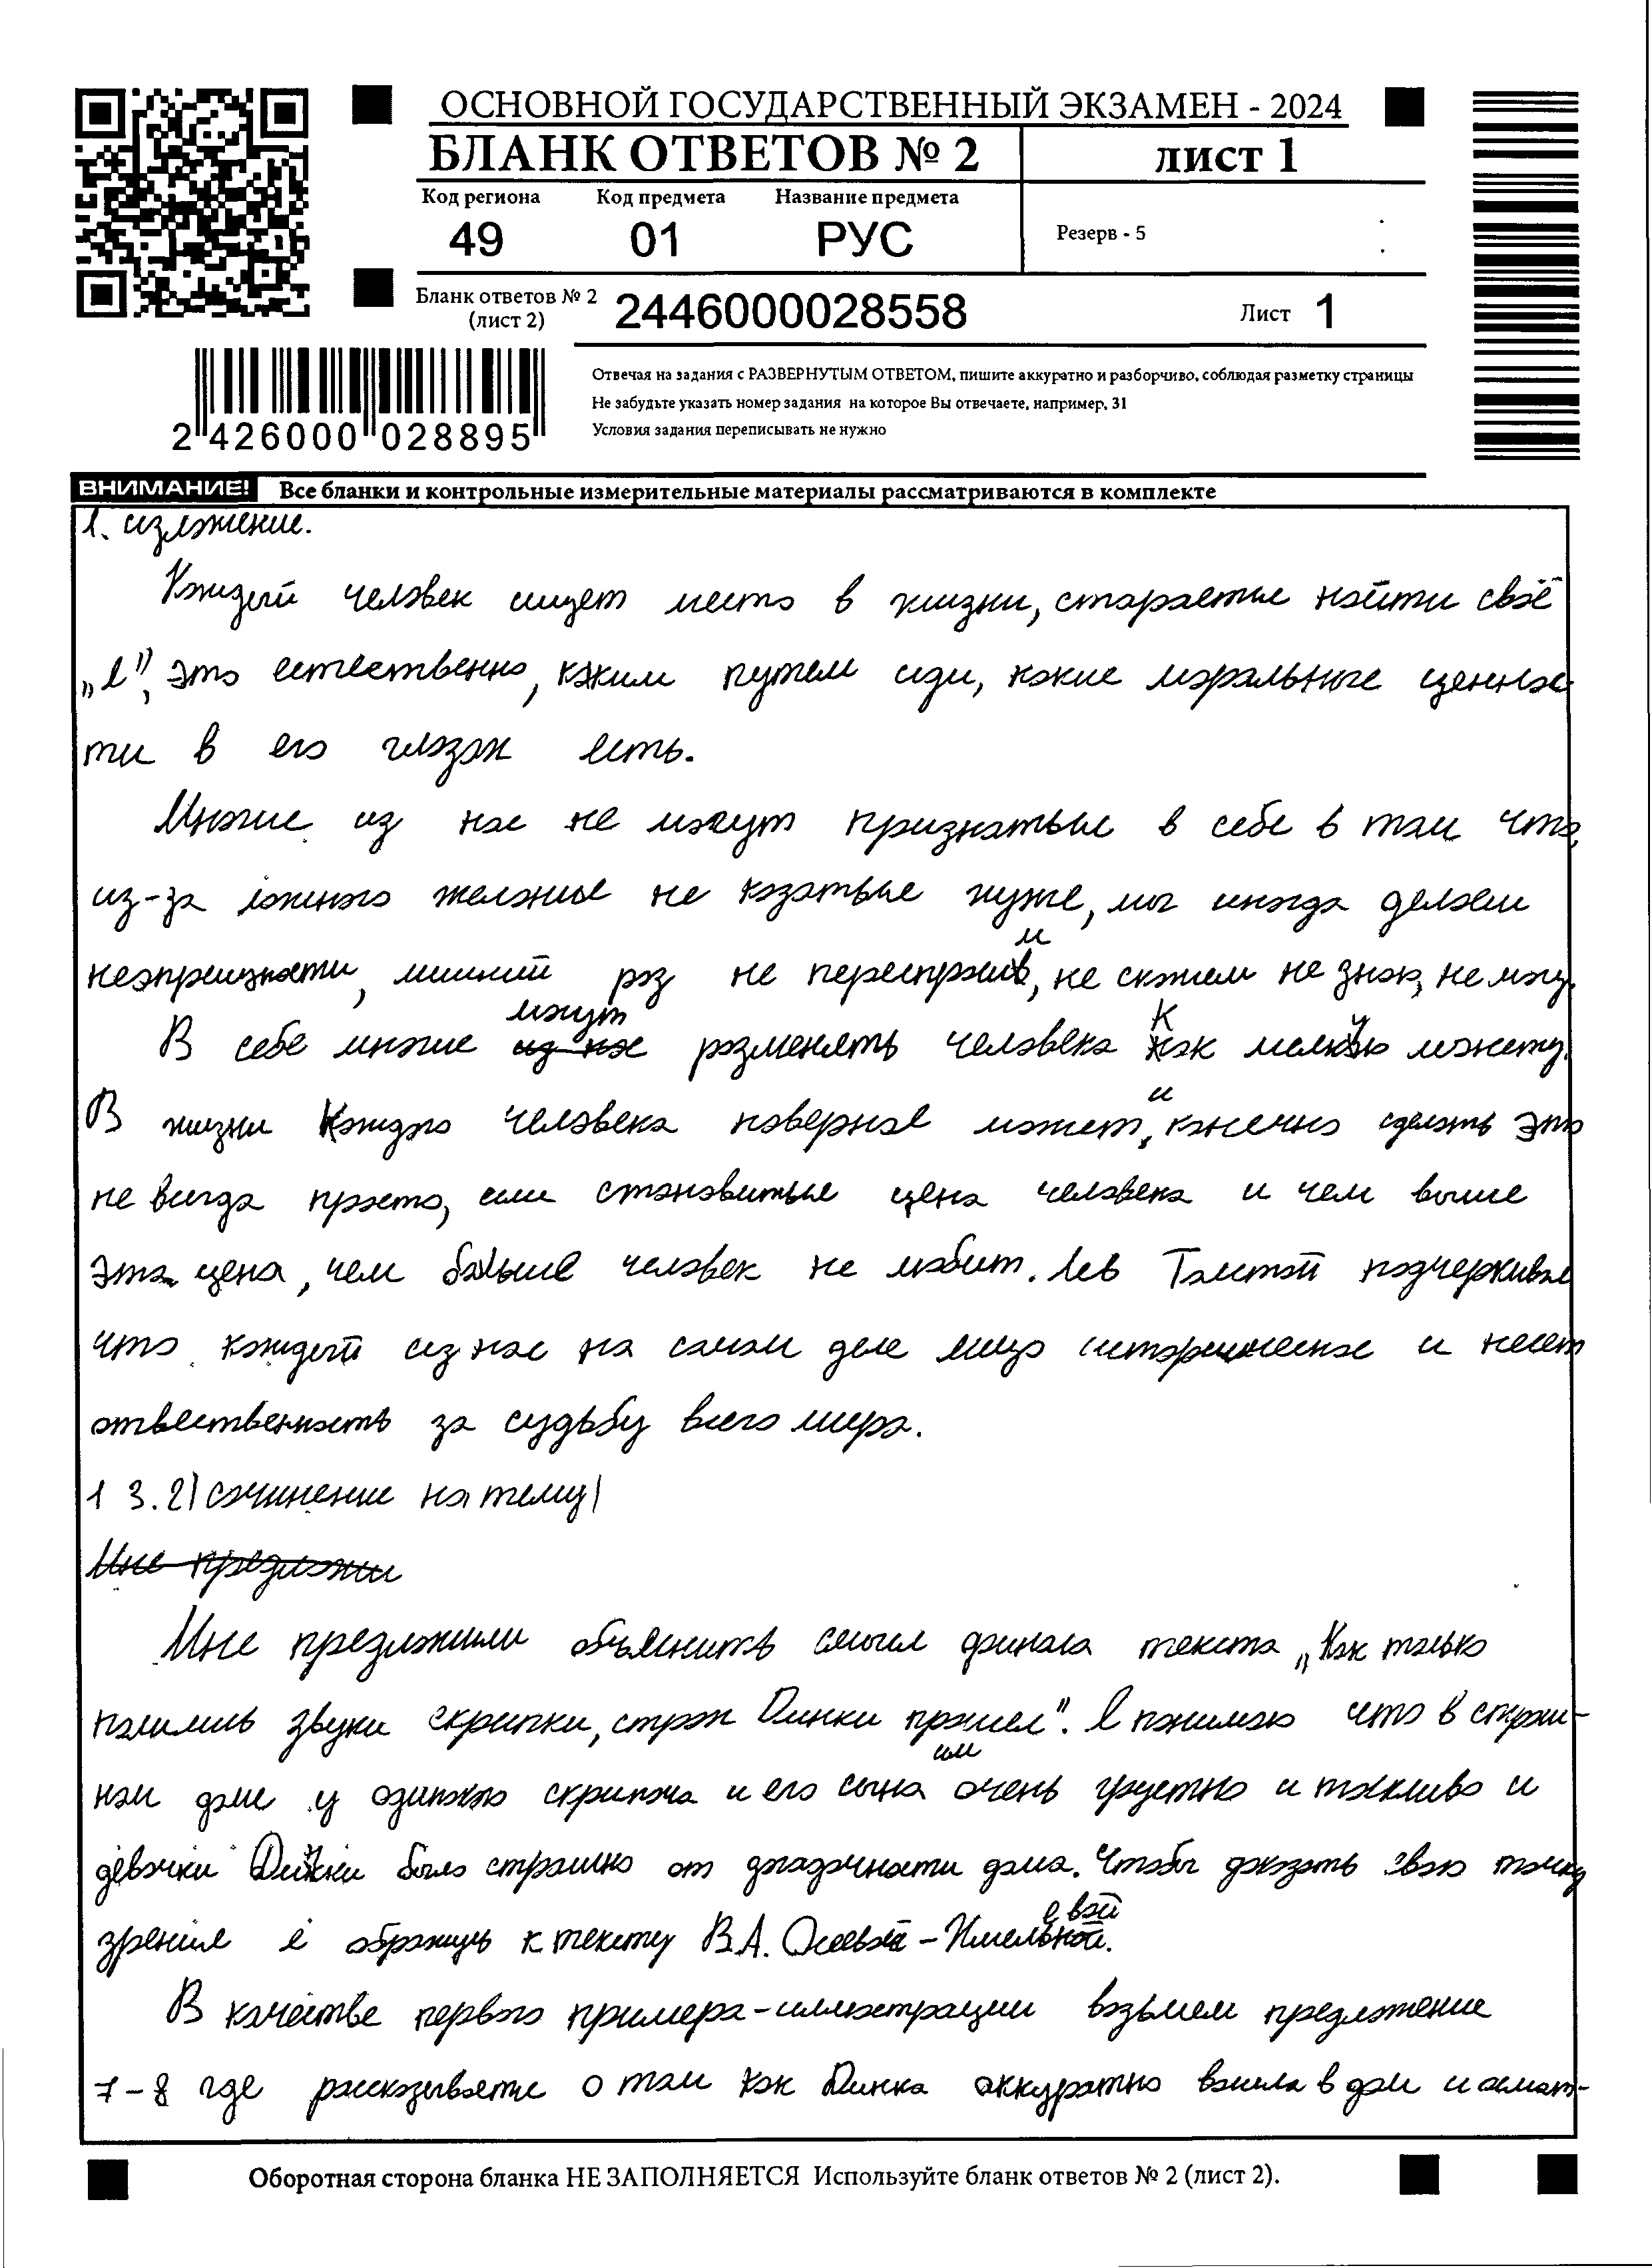 ОСНОВНОЙ ГОСУДАРСТВЕННЫЙ ЭКЗАМЕН - 2024
БЛАНК ОТВЕТОВ № 2
лист 1
Код региона Код предмета Название предмета
49 01 РУС
Резерв - 5
Бланк ответов № 2
(лист 2)
2446000028558
Лист 1
2 426000 028895
Отвечая на задания с РАЗВЕРНУТЫМ ОТВЕТОМ, пишите аккуратно и разборчиво, соблюдая разметку страницы
Не забудьте указать номер задания на которое Вы отвечаете, например, 31
Условия задания переписывать не нужно
ВНИМАНИЕ! Все бланки и контрольные измерительные материалы рассматриваются в комплекте
1. изложение.
Каждый человек ищет место в жизни, старается найти своё
„я", это естественно, каким путем иди, какие моральные ценнос
ти в его глазах есть.
Многие из нас не могут признаться в себе в том что,
из-за ложного желанье не казаться хуже, мы иногда делаем
неопризности, лишний раз не переспросим, не скажем не знаю, не могу.
В себе многие могут разменять человека как мелкую монету.
В жизни каждого человека наверное может, и конечно сделать это
не всегда просто, или становиться цена человека и чем выше
эта цена, чем больше человек не любит. Лев Толстой подчеркивал
что каждый из нас на самом деле лицо историческое и несет
отвественность за судьбу всего мира.
13.2) сочинение на тему)
Мне предложи
Мне предложили объяснить смысл финала текста „Как только
полились звуки скрипки, страх Динки прошел". Я понимаю что в страш-
ном доме у одинокого скрипача и его сына очень грустно и тоскливо и
девочки Динки было страшно от догадочности дома. Чтобы доказать свою точку
зрения я обращусь к тексту В.А. Осеевой-Хмелевой.
В качестве первого примера-иллюстрации возьмем предложение
7-8 где рассказываете о том как Динка аккуратно вошла в дом и осмот-
Оборотная сторона бланка НЕ ЗАПОЛНЯЕТСЯ Используйте бланк ответов № 2 (лист 2).